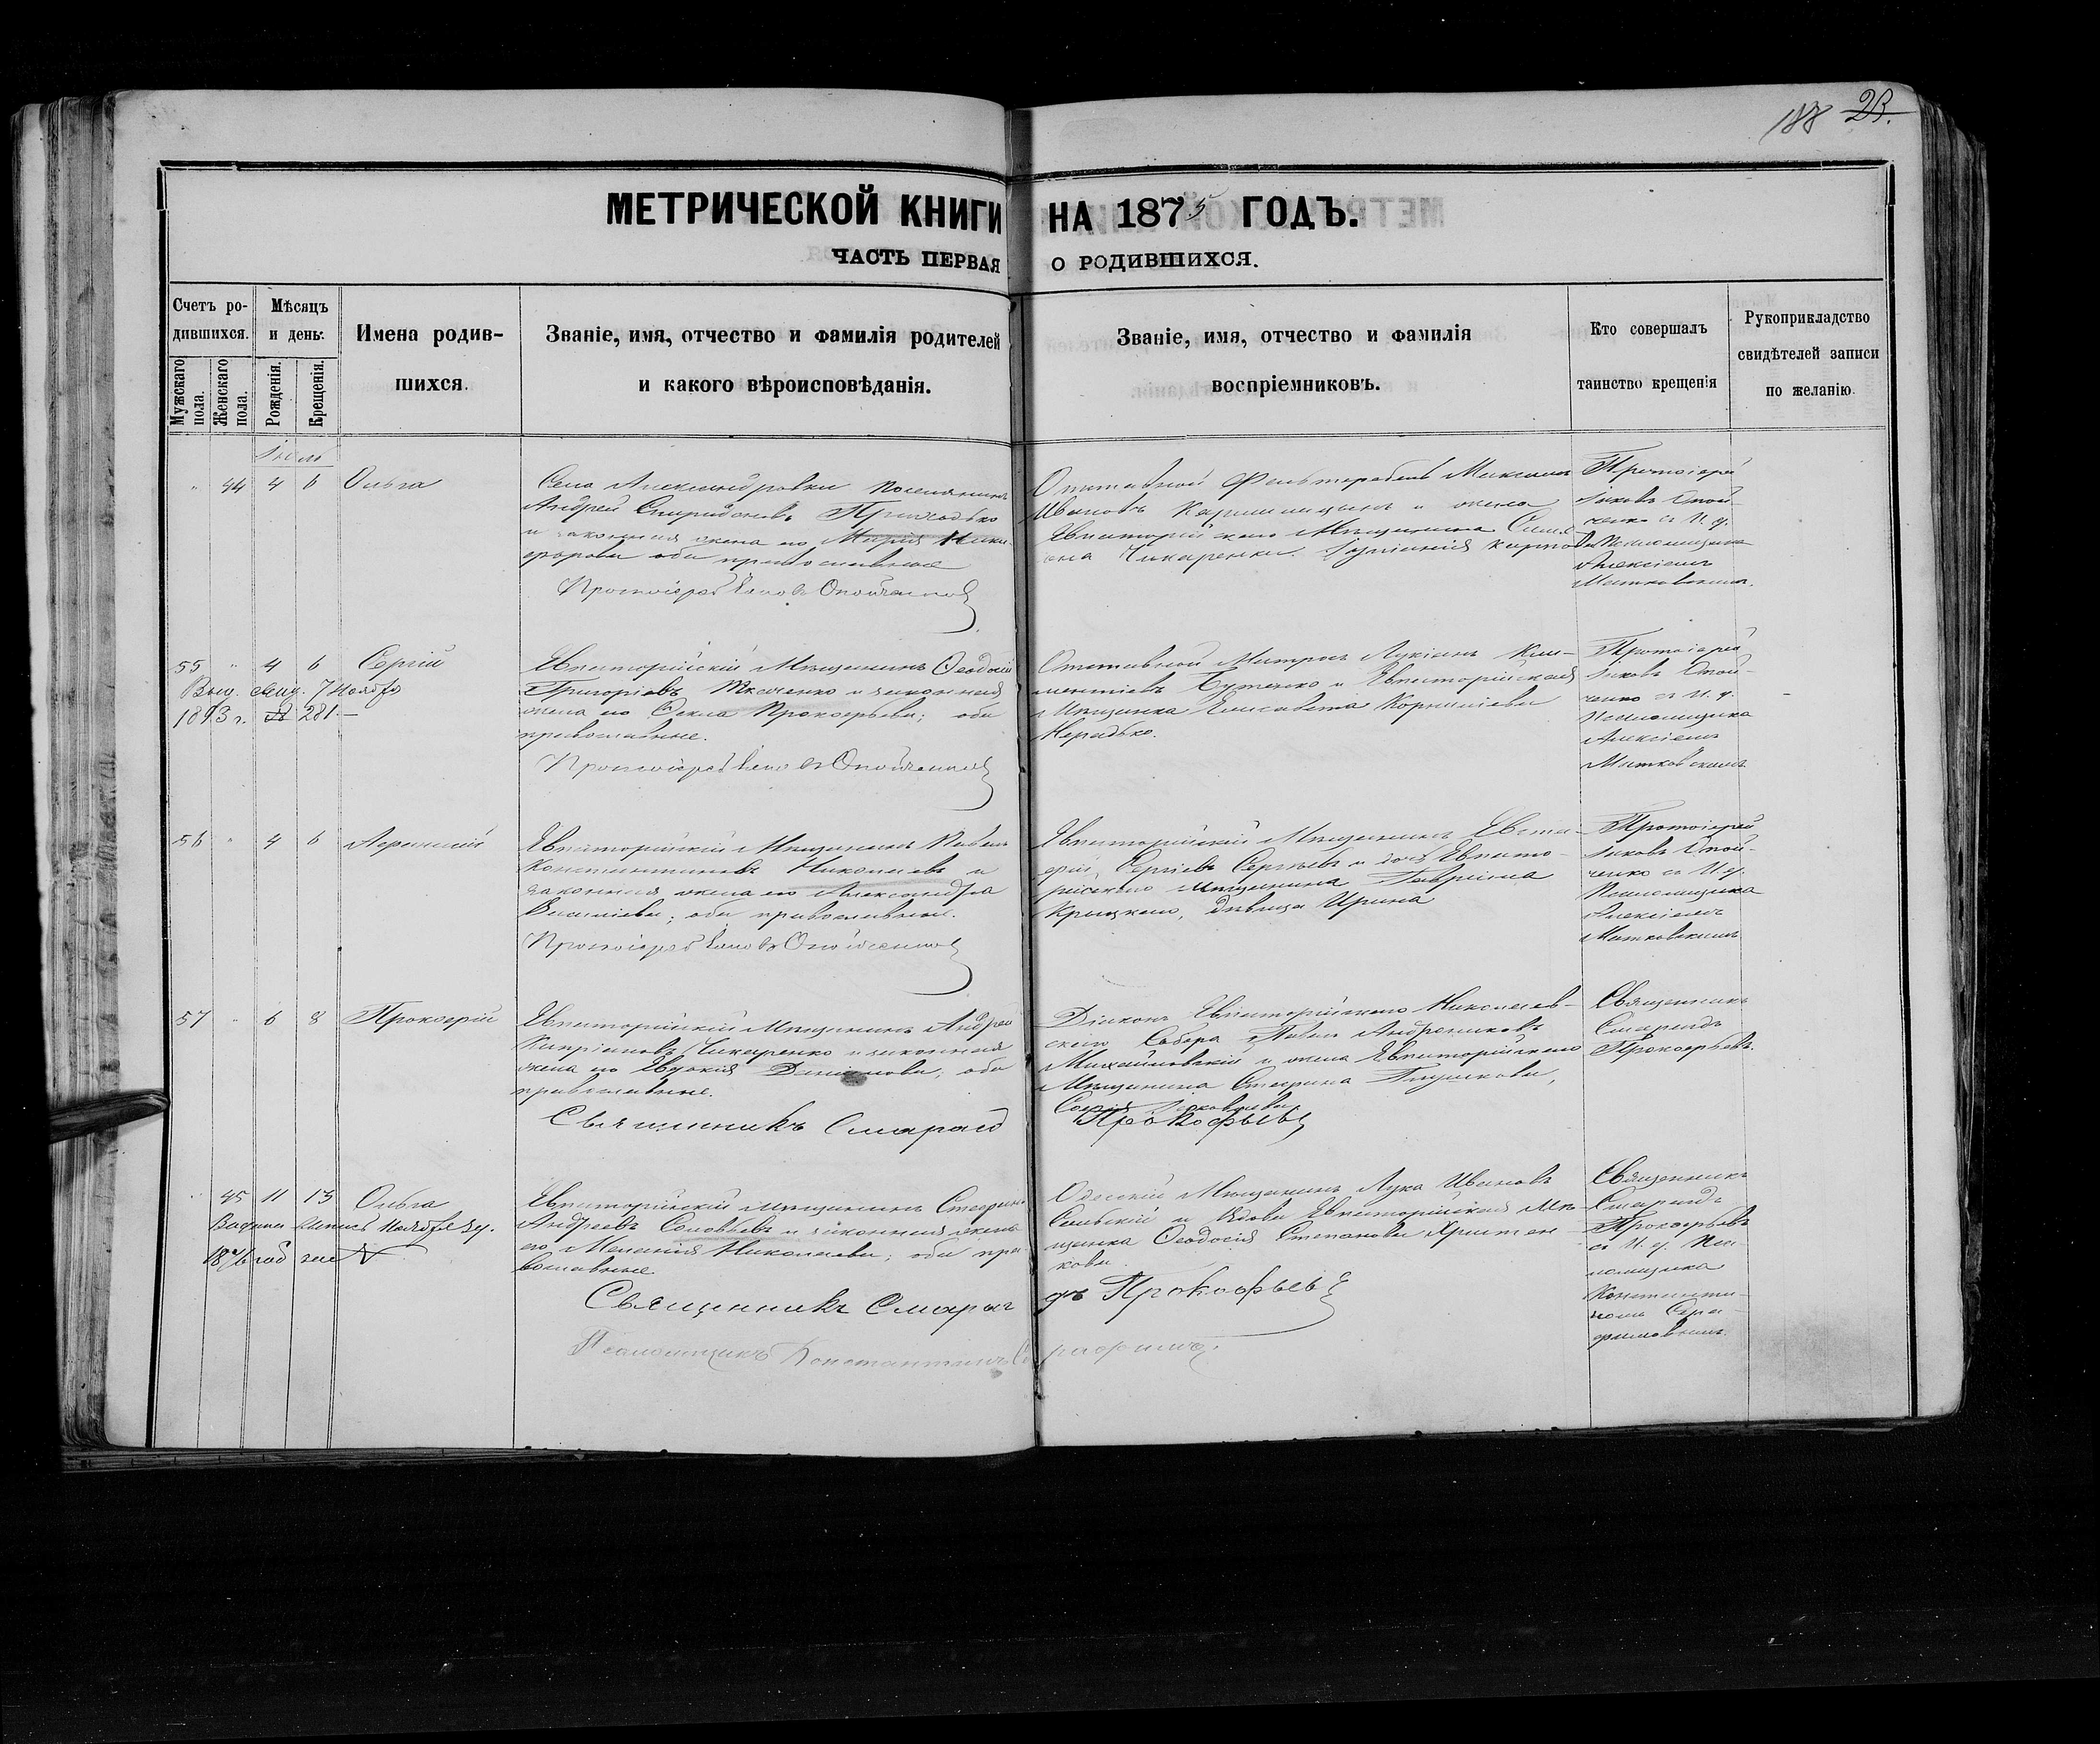 188 23.
МЕТРИЧЕСКОЙ КНИГИ НА 1875 ГОДЪ.
ЧАСТЬ ПЕРВАЯ О РОДИВШИХСЯ.
Счетъ родившихся.
Мужскаго пола.
Женскаго пола.
Мѣсяцъ и день:
Рожденія.
Крещенія.
Имена родив-
шихся.
Званіе, имя, отчество и фамилія родителей
и какого вѣроисповѣданія.
Званіе, имя, отчество и фамилія
воспріемниковъ.
Кто совершалъ
таинство крещенія
Рукоприкладство
свидѣтелей записи
по желанію.
Іюль
" 44 4 6 Ольга
Села Александровки поселянинъ
Андрей Спиридоновъ Приходько
и законная жена его Марія Ники-
форова оба православные
Протоіерей Іаковъ Опойченко
Отставной Фельтфебель Максимъ
Ивановъ и жена
Евпаторійскаго Мѣщанина
Чикаренки
Протоіерей
Іаковъ Опой-
ченко съ И. д.
Псаломщика
Алексіемъ
Матковскимъ.
55 " 4 6 Сергій
Выд. свид. 7 Ноября
1893 г. № 281.—
Евпаторійскій Мѣщанинъ Ѳеодосій
Григорьевъ Ткаченко и законная
жена его Ѳекла Прокофьева; оба
православные.
Протоіерей Іаковъ Опойченко
Отставной Матросъ Лукіанъ Кли-
ментіевъ Бутенко и Евпаторійская
Мѣщанка Елисавета Корниліева
Нерадько.
Протоіерей
Іаковъ Опой-
ченко съ И. д.
Псаломщика
Алексіемъ
Матковскимъ
56 " 4 6
Евпаторійскій Мѣщанинъ Павелъ
Константиновъ Николаевъ и
законная жена его Александра
Василіева; оба православные.
Протоіерей Іаковъ Опойченко
Евпаторійскій Мѣщанинъ
Сергіевъ Сергѣевъ и дочь Евпато-
рійскаго Мѣщанина Гавріила
Крицкаго, дѣвица Ирина
Протоіерей
Іаковъ Опой-
ченко съ И. д.
Псаломщика
Алексіемъ
Матковскимъ
57 " 6 8 Прокофій
Евпаторійскій Мѣщанинъ Андрей
Кипріановъ Чикаренко и законная
жена его Евдокія оба
православные.
Священникъ Смарагд
Діаконъ Евпаторійскаго Николаев-
скаго Собора Павелъ Андрониковъ
Михайловскій и жена Евпаторійскаго
Мѣщанина Стефана Глушкова,
Софія Яковлева
Прокофьевъ
Священникъ
Смарагдъ
Прокофьевъ.
" 45 11 13 Ольга
Выдана Ноября
год за №
Евпаторійскій мѣщанинъ Стефанъ
Андреевъ Соловьевъ и законная жена
его Меланія Николаева; оба пра-
вославные.
Священникъ Смараг
дъ Прокофьевъ
Псаломщикъ Константинъ Се
рафимовъ.
Одесскій Мѣщанинъ Лука Ивановъ
Сельскій и вдова Евпаторійская Мѣ-
щанка Ѳеодосія Степанова
кова.
Священникъ
Смарагдъ
Прокофьевъ
съ И. д. Пса-
ломщика
Константи-
номъ Сера-
фимовымъ.